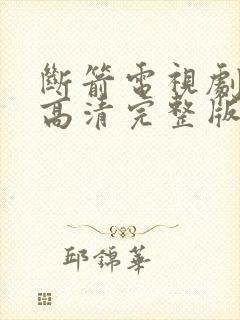 斷箭電視劇
高清完整版
邱錦華